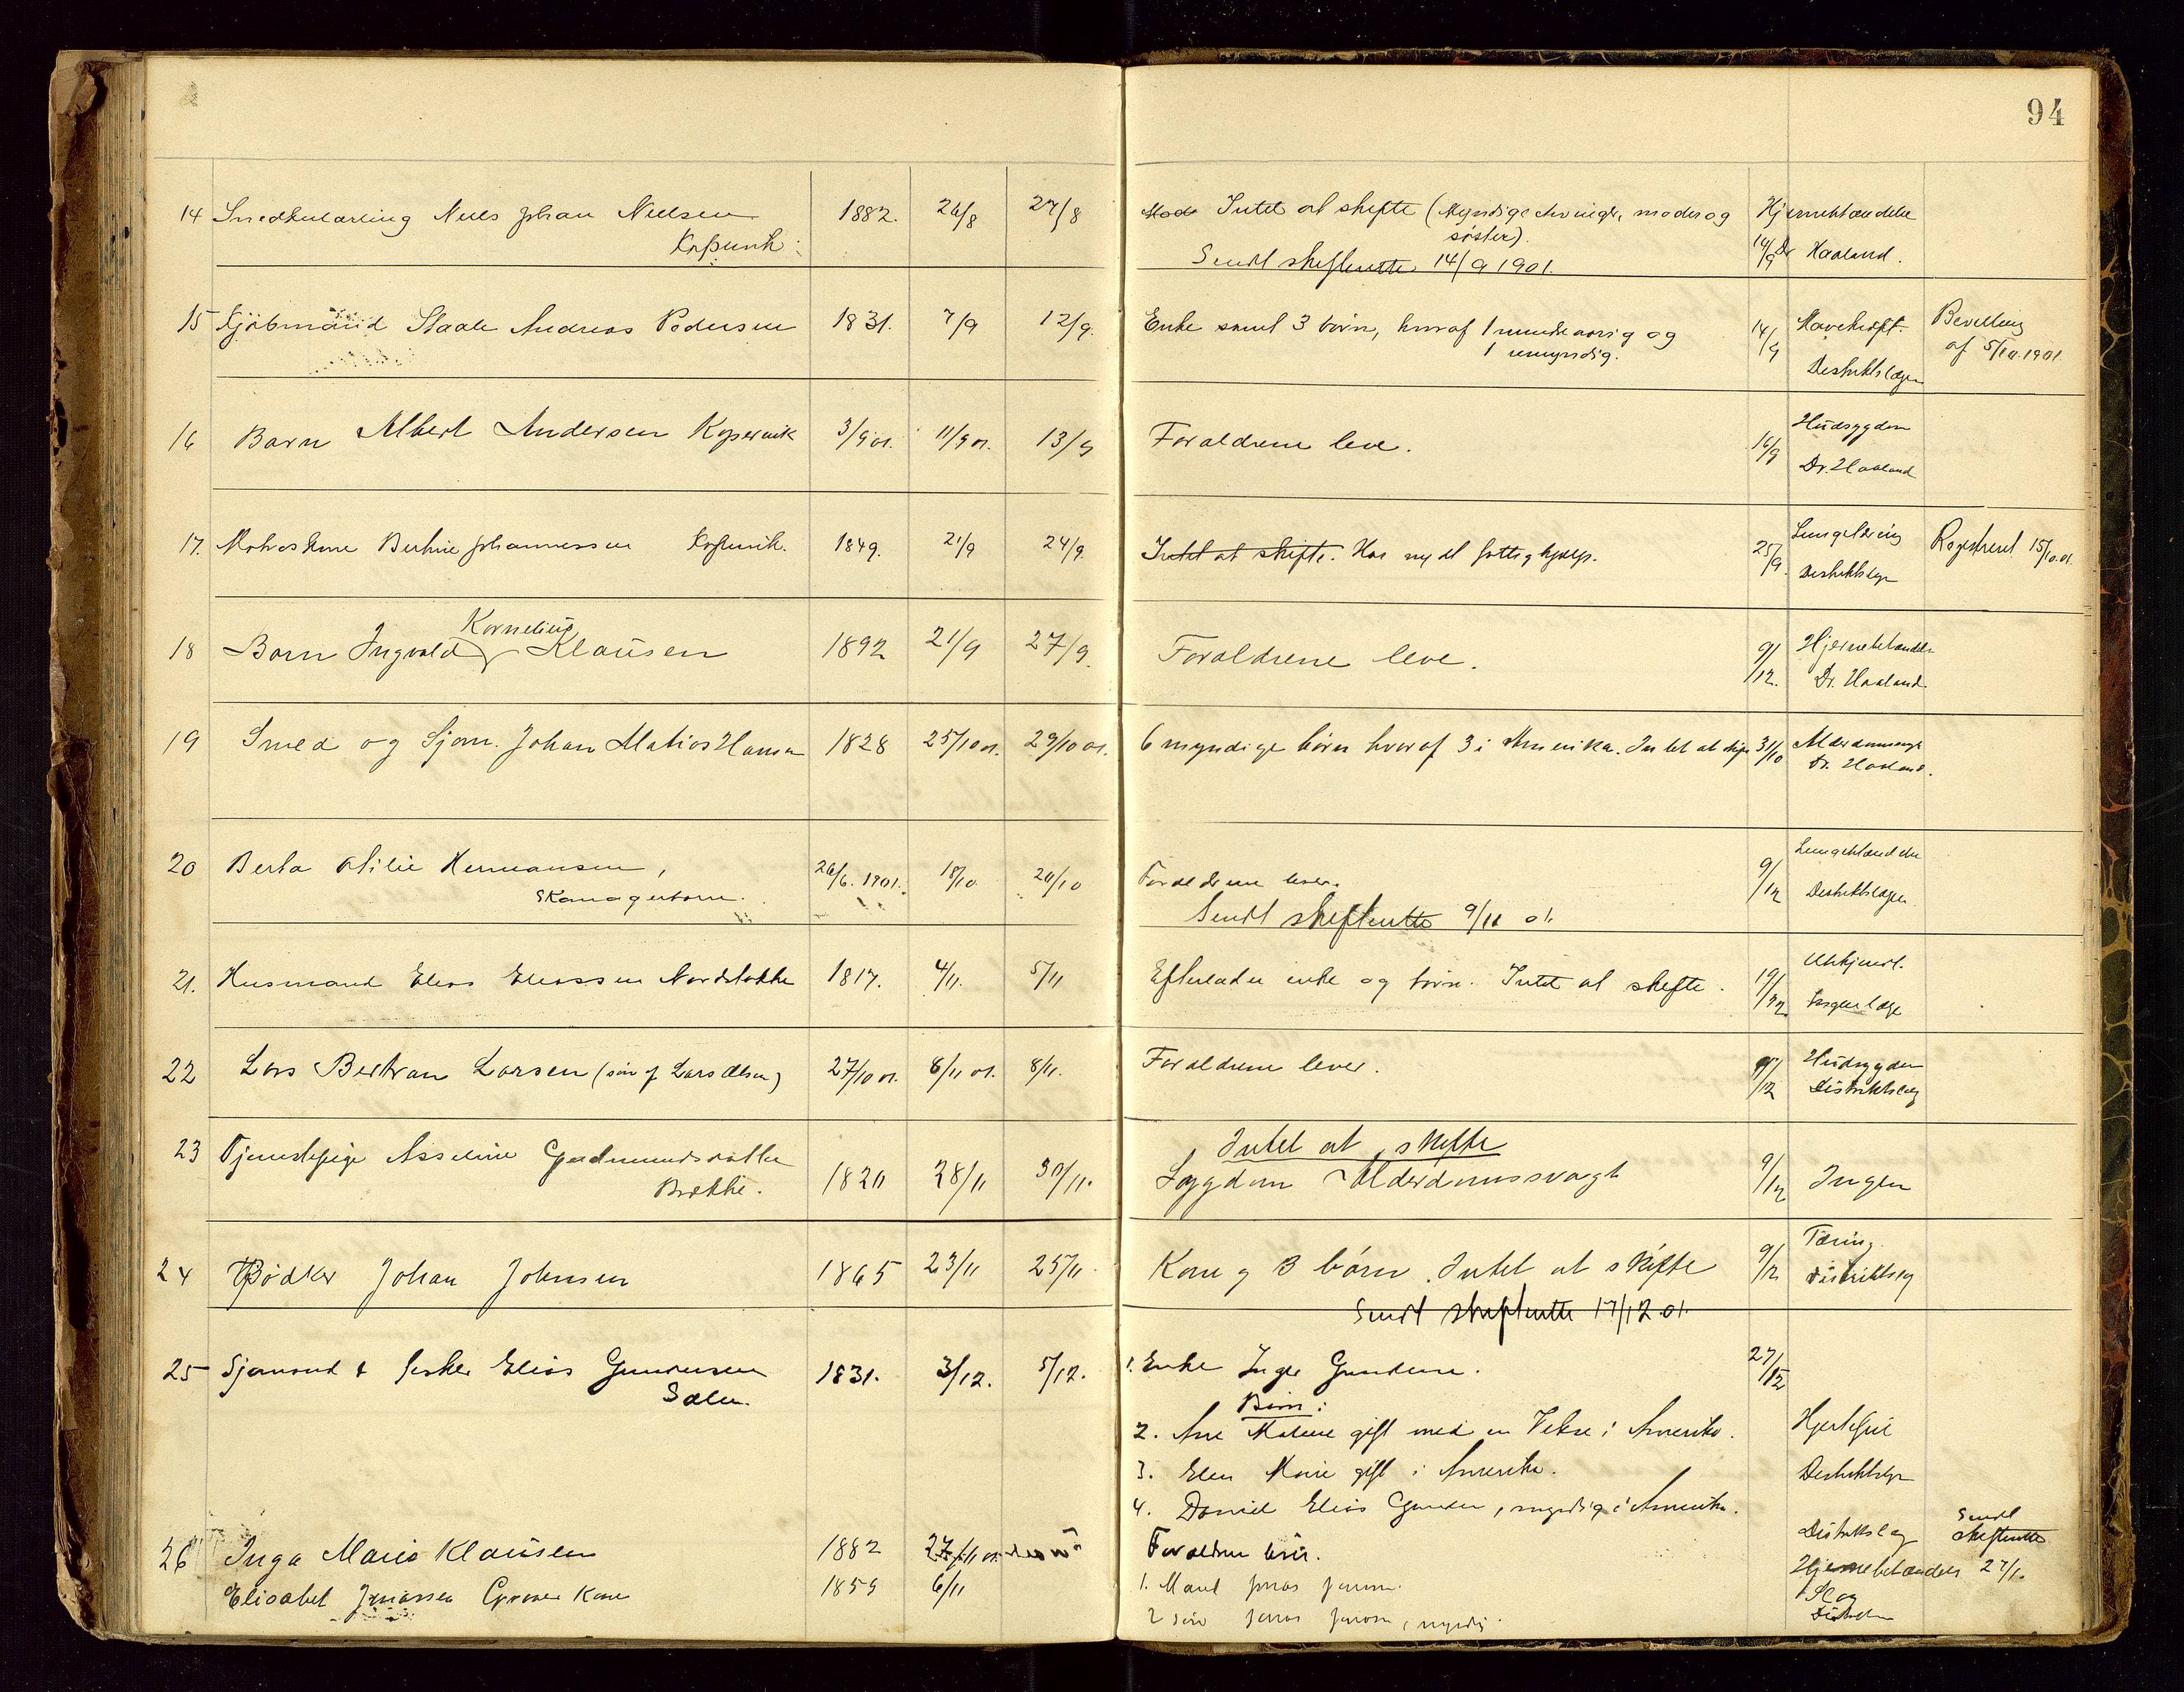 94
14 Smedkutarling Niels Johan Nielsen 1882. 26/8 27/8 Intet at skifte (Myndige Arvinger, moder og Hjernebetændelse
Kopervik søster). 14/9 Dr Haaland.
Sendt skifteretten 14/9 1901.
15 Kjøbmand Staale Andreas Pedersen 1831. 7/9 12/9. Enke samt 3 børn, hvoraf 1 mindreaarig og 14/9 Mavekræft Bevilling
1 umyndig. Distriktslægen af 5/10.1901.
16 Barn Albert Andersen Kopervik 3/9 01. 11/9 01. 13/9 Forældrene leve. 16/9 Hudsygdom
Dr. Haaland
17. Johannessen Kopervik. 1849. 21/9 24/9. Intet at skifte. Har nydt fattighjælp. 25/9. Registreret 15/10.01.
Distriktslæge
Kornelius
18 Barn Ingvald Klausen 1892 21/9 27/9. Forældrene leve. 9/12. Hjernebetændelse
Dr. Haaland.
19 Smed og Sjøm. Johan Matias Hansen 1828 25/10 01. 29/10 01. 6 myndige børn hvoraf 3 i Amerika. Intet at skifte 31/10 Alderdomssvagt
Dr. Haaland.
20 Berta Otilie Hermansen, 26/6. 1901. 18/10. 20/10 Forældrene lever. 9/12 Lungebetændelse
Skomagerbarn. Distriktslægen
Sendt skifteretten 9/11 01.
21. Husmand Elias Eliassen Nordstokke 1817. 4/11. 5/11 Efterlader enke og børn. Intet at skifte. 19/12. Ubekjendt.
Ingen læge
22 Lars Bertran Larsen (søn af Lars Olsen) 27/10 01. 6/11 01. 8/11. Forældrene lever. 9/12 Hudsygdom
Distriktslæg
Intet at skifte
23 Tjenestepige Asseline Gudmundsdatter 1820 28/11 30/11. Sygdom Alderdomssvagt 9/12 Ingen
Brekke.
24 Bødker Johan Johnsen 1865 23/11 25/11. Kone og 3 børn. Intet at skifte 9/12 Tæring.
Distriktslæg
Sendt skifteretten 17/12 01.
25 Sjømand & fisker Elias Gundersen 1831. 3/12. 5/12. 1. Enke Inger Gundersen. 27/12
Børn:
2. Ane Maline gift med en i Amerika. Hjertefeil
3. Elen Marie gift i Amerika. Distriktslæge
4. Daniel Elias Gundersen, myndig i Amerika.
Sendt
26 Inga Maria Klausen 1882 27/11 01. Forældrene lever. Distriktslæg skifteretten
Hjernebetændelse 27/1.
Elisabet Jonassen kone 1859 6/11 1. Mand Jonas Jonassen.
2 søn Jonas Jonassen, myndig.